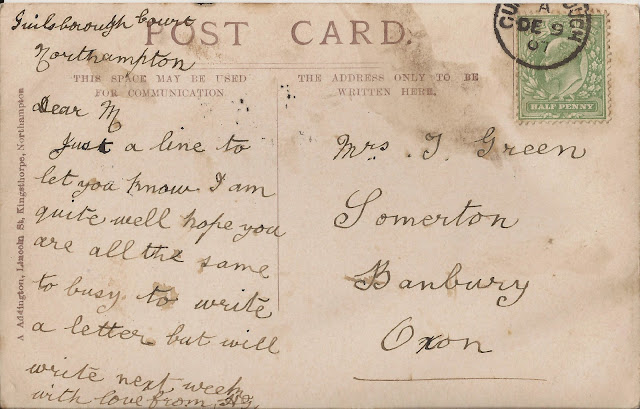 Guilsborough Court
Northampton
POST CARD.
THIS SPACE MAY BE USED
FOR COMMUNICATION
THE ADDRESS ONLY TO BE
WRITTEN HERE.
Dear M
Just a line to
let you know I am
quite well hope you
are all the same
to busy to write
a letter but will
write next week
with love from
Mrs. J. Green
Somerton
Banbury
Oxon
A
DE 9
07
HALF PENNY
A Addington, Lincoln St, Kingsthorpe, Northampton